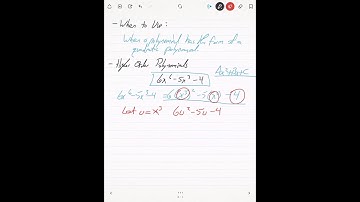 - When to Use:
When a polynomial has the form of a
quadratic polynomial
- Higher Order Polynomials
6x⁶-5x³-4 Ax²+Bx+C
6x⁶-5x³-4 = 6(x³)²-5(x³)-4
Let u=x³ 6u²-5u-4